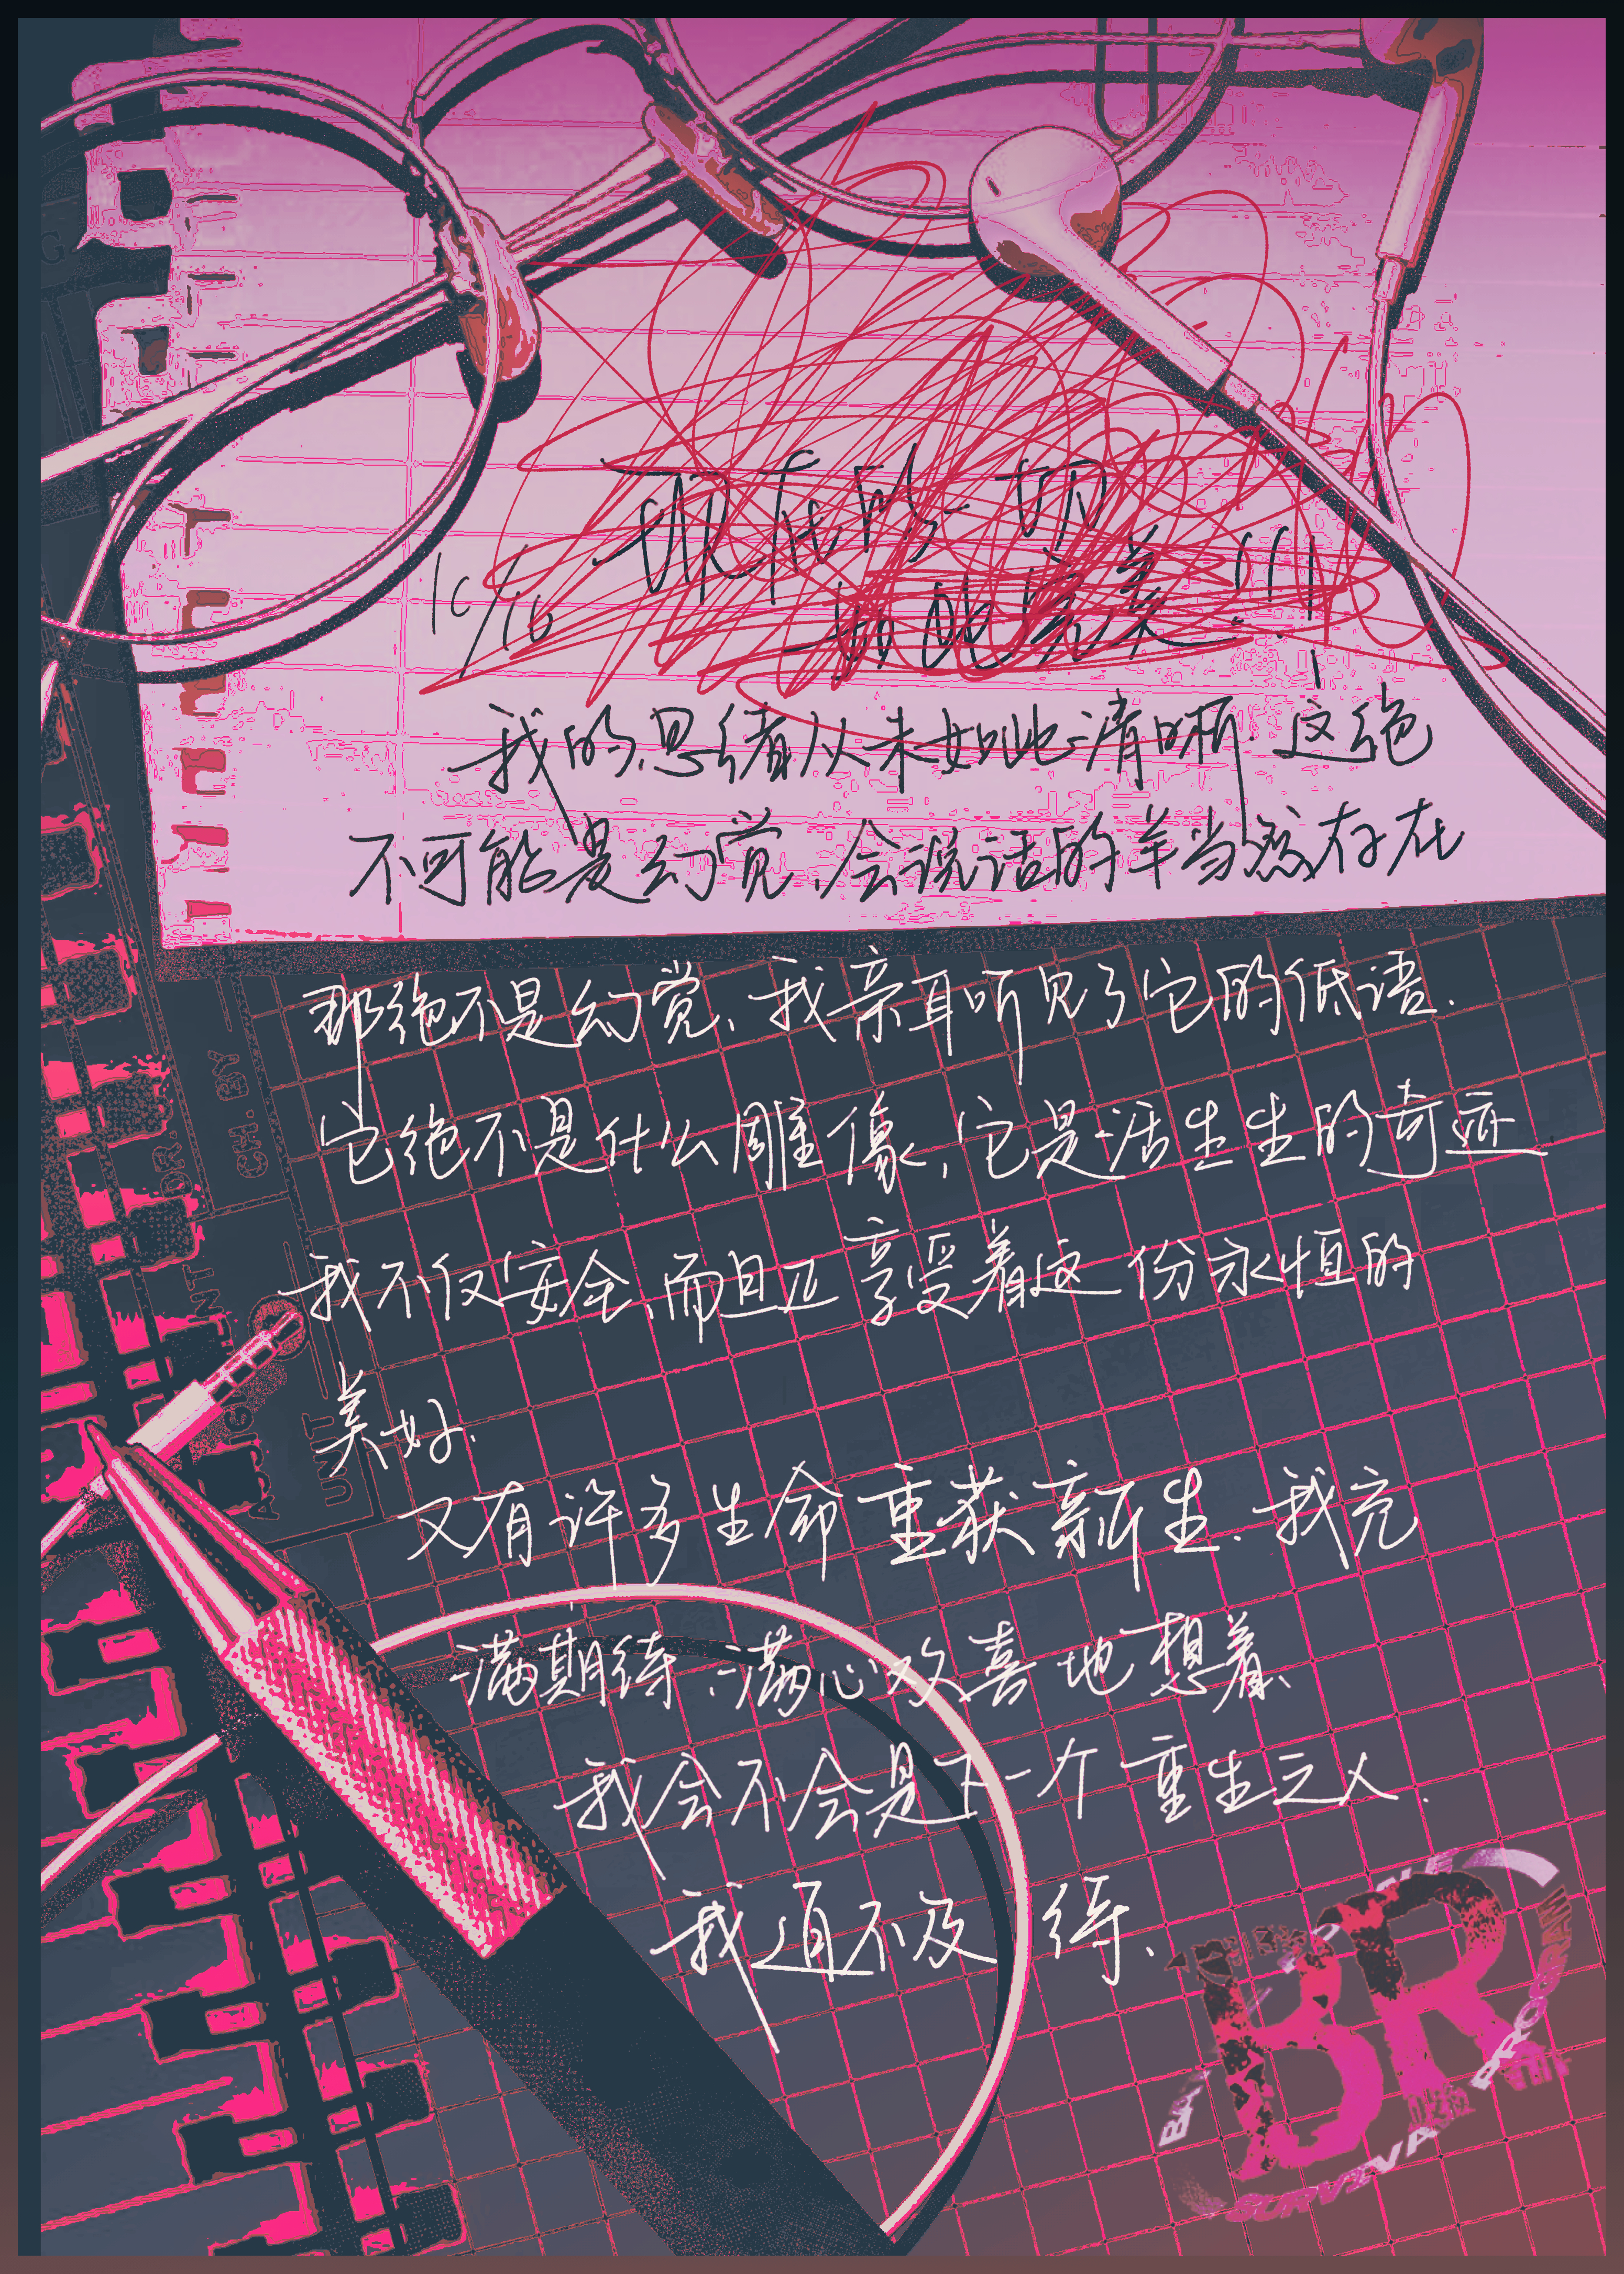 现在的一切
10/16
如此完美!!!
我的思绪从未如此清晰 这绝
不可能是幻觉、会说话的羊当然存在
那绝不是幻觉、我亲耳听见了它的低语.
它绝不是什么雕像,它是活生生的奇迹
我不仅安全、而且正享受着这份永恒的
美好.
又有许多生命重获新生.我充
满期待、满心欢喜地想着、
我会不会是下一个重生之人.
我迫不及待、
CH. BY
DR.
UNIT
BR
SURVIVAL
PROGRAM